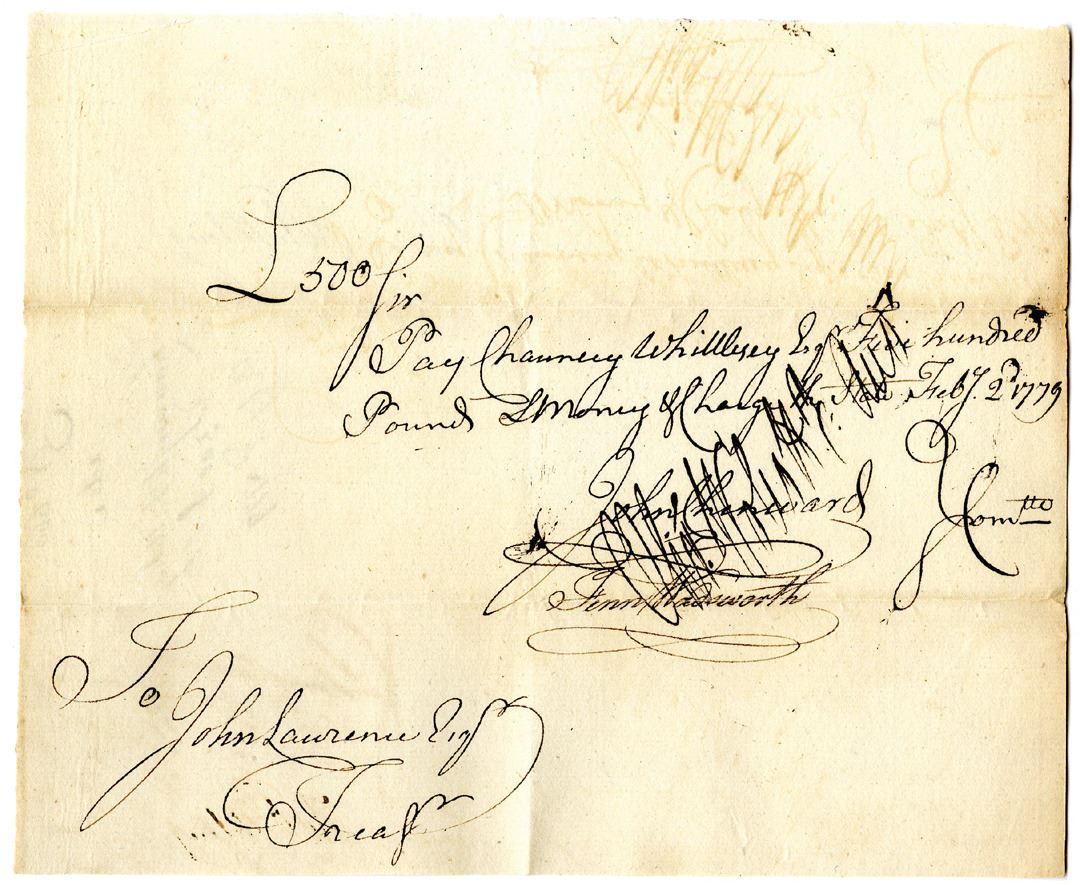 £500 Sir
Pay Chauncey Whittlesey Esqr Five hundred
Pounds L Money & Charge the State Feby. 2d 1779
John Chenward
Comtte
Fenn Wadsworth
To
John Lawrence Esqr
Treasr